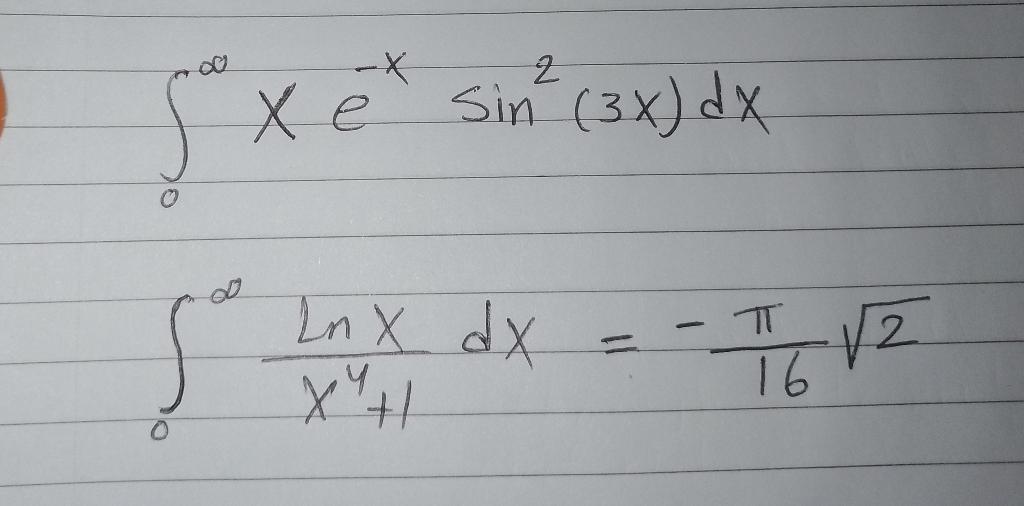 ∫₀^∞ x e^(-x) sin²(3x) dx
∫₀^∞ Ln x / (x⁴+1) dx = - π/16 √2